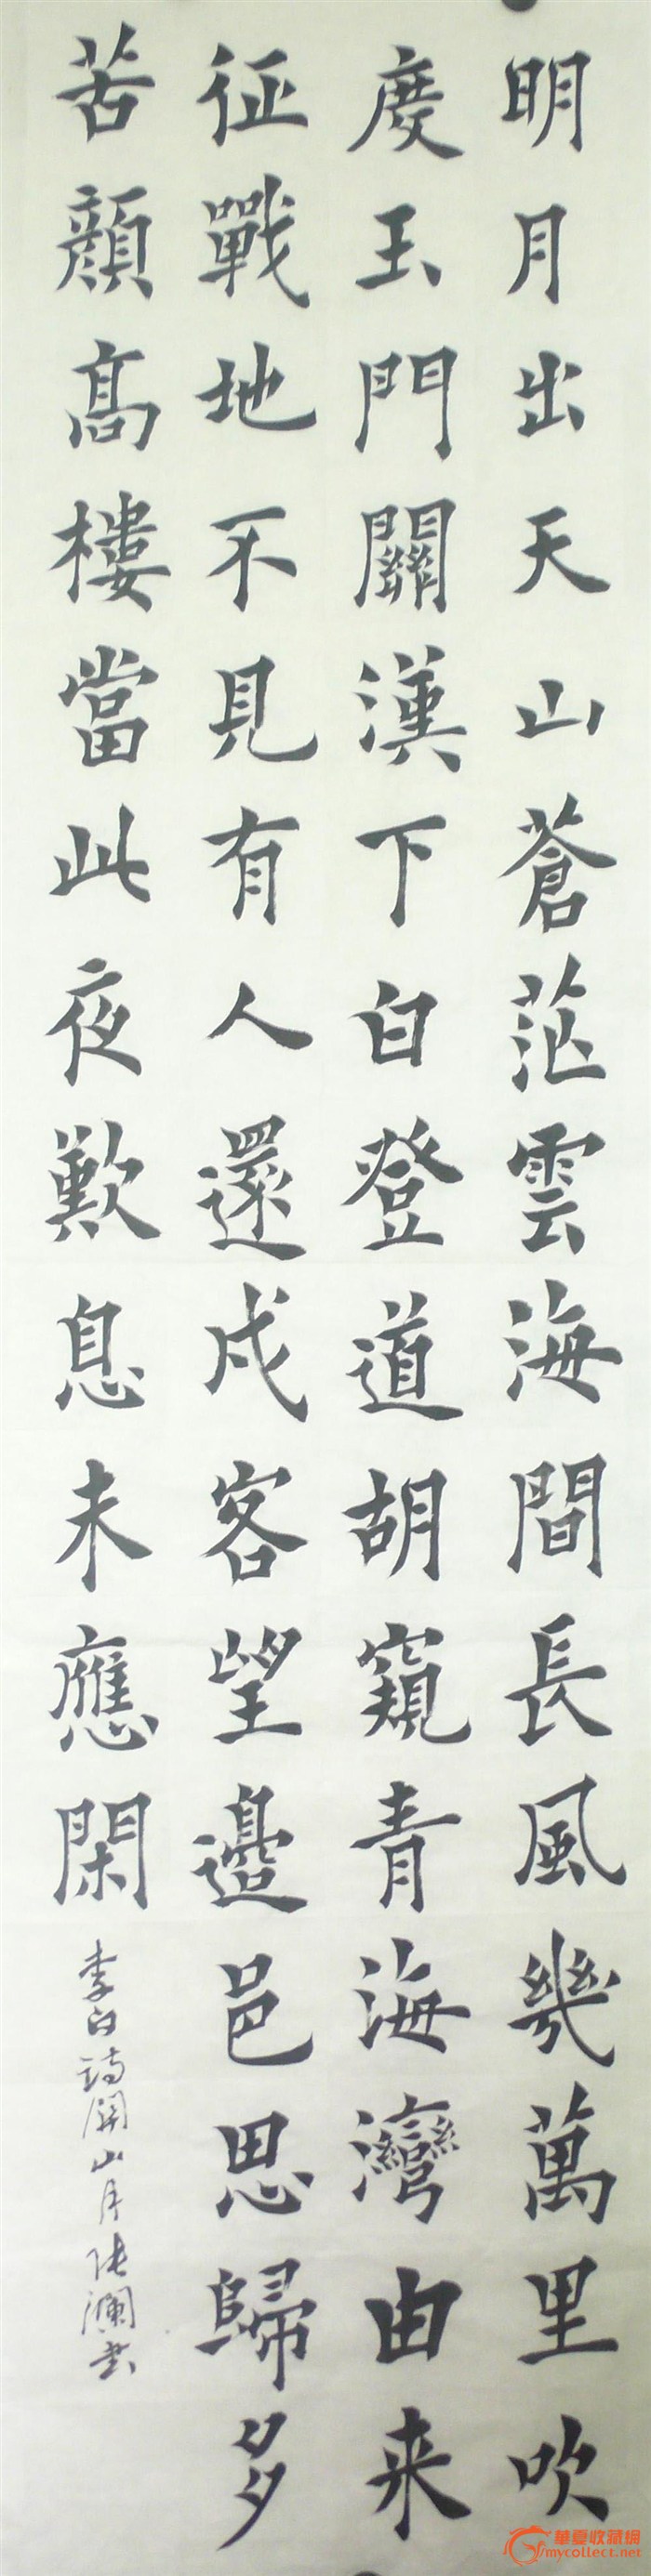 明月出天山蒼茫雲海間長風幾萬里吹
度玉門關漢下白登道胡窺青海灣由来
征戰地不見有人還戍客望邊邑思歸多
苦顏高樓當此夜歎息未應閑
李白詩關山月 張瀾书
華夏收藏網
mycollect.net